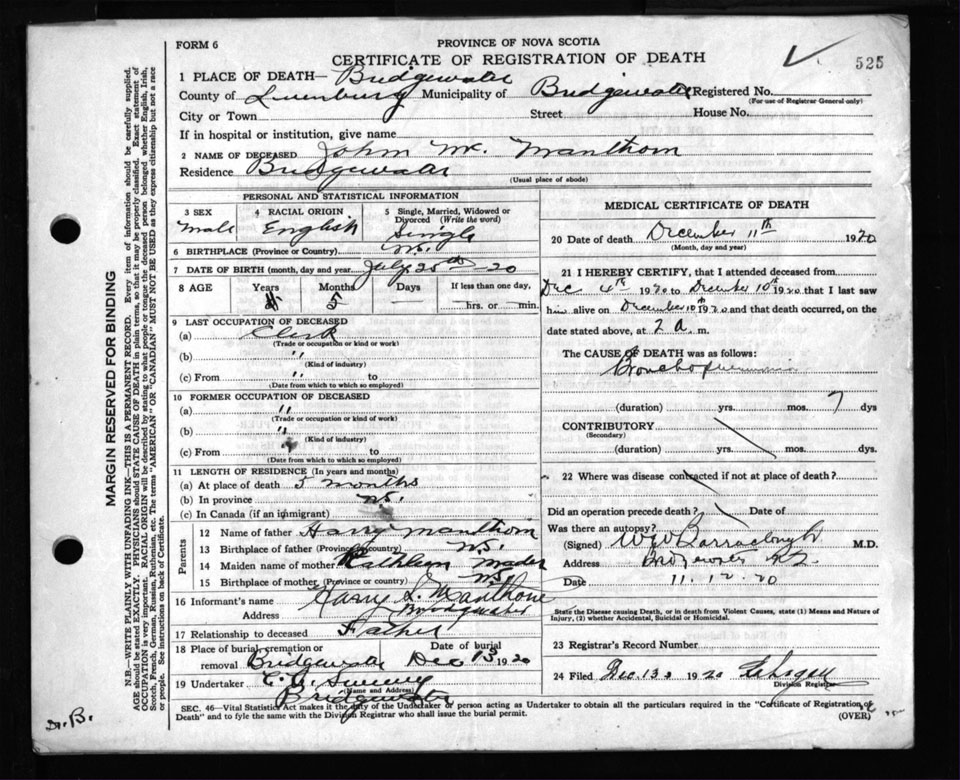 FORM 6
PROVINCE OF NOVA SCOTIA
CERTIFICATE OF REGISTRATION OF DEATH
525
1 PLACE OF DEATH— Bridgewater
County of Lunenburg Municipality of Bridgewater Registered No.
(For use of Registrar General only)
City or Town Street House No.
If in hospital or institution, give name
2 NAME OF DECEASED John Mc. Manthorn
Residence Bridgewater
(Usual place of abode)
PERSONAL AND STATISTICAL INFORMATION
3 SEX 4 RACIAL ORIGIN 5 Single, Married, Widowed or Divorced (Write the word)
Male English Single
6 BIRTHPLACE (Province or Country) N.S.
7 DATE OF BIRTH (month, day and year) July 25th 20
8 AGE Years Months Days If less than one day,
5 hrs. or min.
9 LAST OCCUPATION OF DECEASED
(a) Clerk
(Trade or occupation or kind or work)
(b) "
(Kind of industry)
(c) From " to
(Date from which to which so employed)
10 FORMER OCCUPATION OF DECEASED
(a) "
(Trade or occupation or kind of work)
(b) "
(Kind of industry)
(c) From to
(Date from which to which so employed)
11 LENGTH OF RESIDENCE (In years and months)
(a) At place of death 5 months
(b) In province N.S.
(c) In Canada (if an immigrant)
Parents
12 Name of father Harry Manthorn
13 Birthplace of father (Province or country) N.S.
14 Maiden name of mother Kathleen Mader
15 Birthplace of mother (Province or country) N.S.
16 Informant's name Harry L. Manthorne
Address Bridgewater
17 Relationship to deceased Father
18 Place of burial, cremation or removal Bridgewater Date of burial Dec 13 1920
19 Undertaker C. A.
(Name and Address)
Bridgewater
MEDICAL CERTIFICATE OF DEATH
20 Date of death December 11th 1920
(Month, day and year)
21 I HEREBY CERTIFY, that I attended deceased from
Dec 4th 1920 to December 10th 1920 that I last saw
him alive on December 10th 1920 and that death occurred, on the
date stated above, at 2 a. m.
The CAUSE OF DEATH was as follows:
Bronchopneumonia
(duration) yrs. mos. 7 dys
CONTRIBUTORY
(Secondary)
(duration) yrs. mos. dys
22 Where was disease contracted if not at place of death?
Did an operation precede death? Date
Was there an autopsy?
(Signed) Barraclough M.D.
Address Bridgewater N.S.
Date 11.12.20
State the Disease causing Death, or in death from Violent Causes, state (1) Means and Nature of
Injury, (2) whether Accidental, Suicidal or Homicidal.
23 Registrar's Record Number
24 Filed Dec. 13 1920
Division Registrar
SEC. 46—Vital Statistics Act makes it the duty of the Undertaker or person acting as Undertaker to obtain all the particulars required in the "Certificate of Registration of
Death" and to fyle the same with the Division Registrar who shall issue the burial permit. (OVER)
MARGIN RESERVED FOR BINDING
N.B.—WRITE PLAINLY WITH UNFADING INK—THIS IS A PERMANENT RECORD. Every item of information should be carefully supplied.
AGE should be stated EXACTLY. PHYSICIANS should STATE CAUSE OF DEATH in plain terms, so that it may be properly classified. Exact statement of
OCCUPATION is very important. RACIAL ORIGIN will be described by stating to what people or tongue the deceased person belonged whether English, Irish,
Scotch, French, German, Russian, Ruthenian, etc. The terms "AMERICAN" OR "CANADIAN" MUST NOT BE USED as they express citizenship but not a race
or people. See instructions on back of Certificate.
Dr. B.